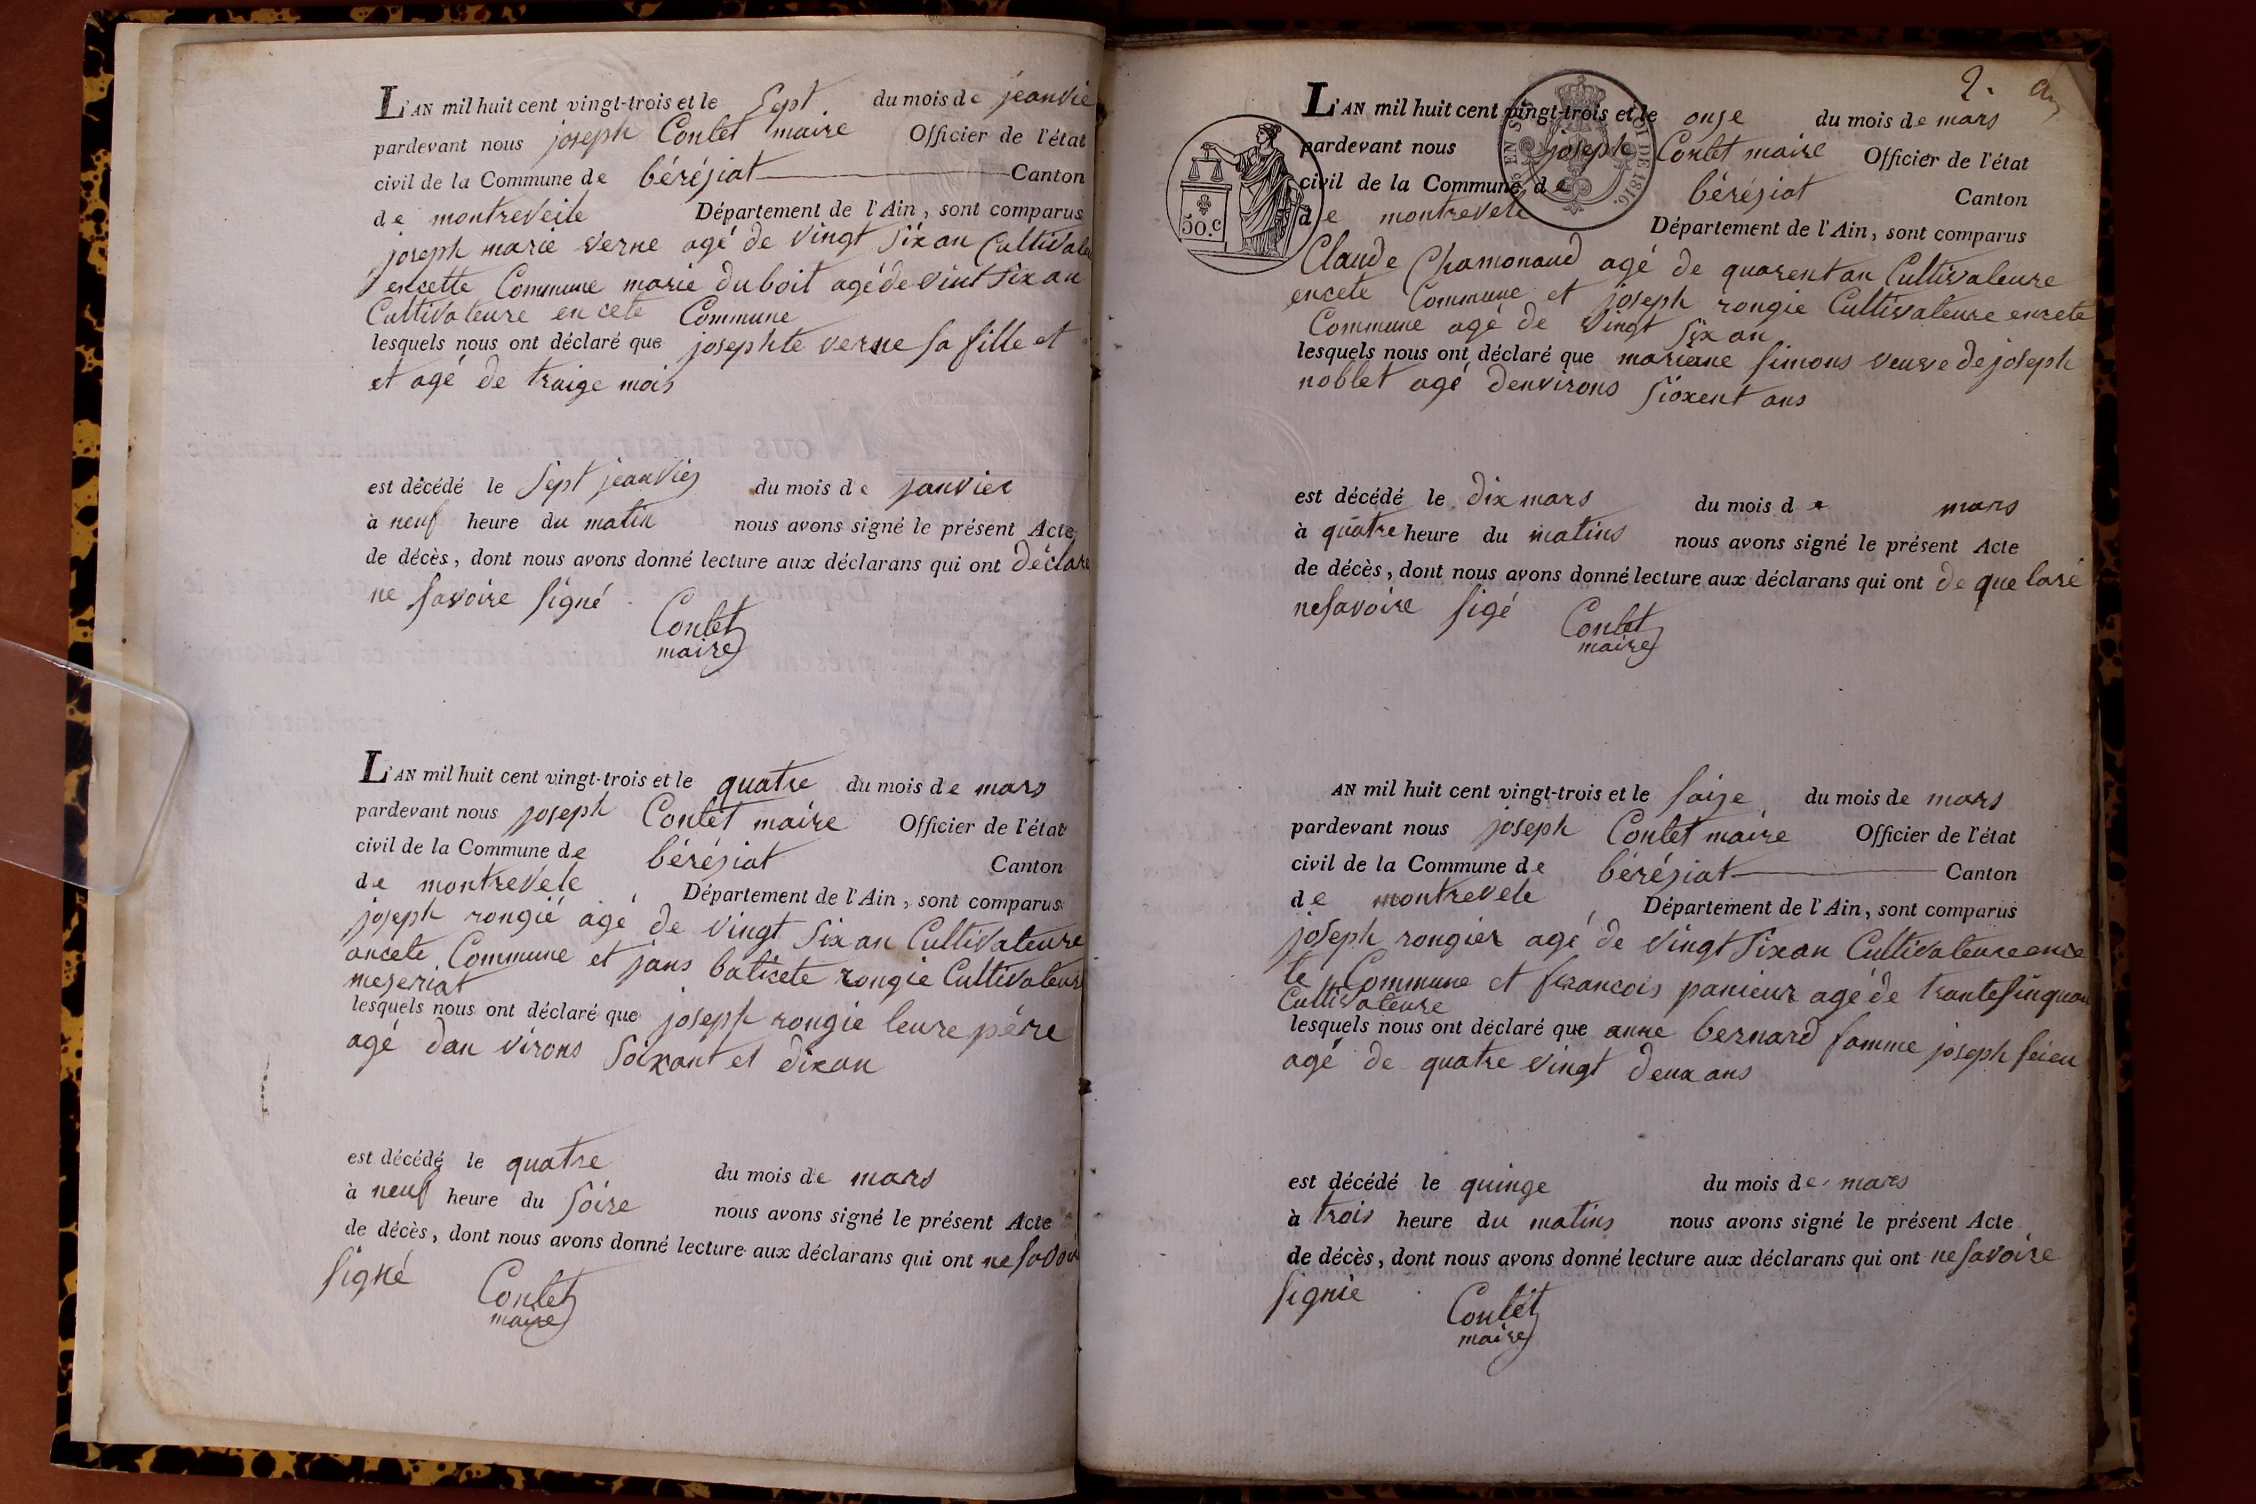 L'AN mil huit cent vingt-trois et le Sept du mois de jeanvie
pardevant nous joseph Contet maire Officier de l'état
civil de la Commune de béréziat Canton
de montreveile Département de l'Ain, sont comparus
joseph marie verne agé de vingt Six an Cultivateu
encette Commune marie duboit agé de vint Six an
Cultivateure en cete Commune
lesquels nous ont déclaré que josephte verne sa fille et
et agé de traize mois
est décédé le Sept jeanvier du mois de janvier
à neuf heure du matin nous avons signé le présent Acte
de décès, dont nous avons donné lecture aux déclarans qui ont déclare
ne savoire signé
Contet
maire
L'AN mil huit cent vingt-trois et le quatre du mois de mars
pardevant nous joseph Contet maire Officier de l'état
civil de la Commune de béréziat Canton
de montrevele Département de l'Ain, sont comparus
joseph rongié agé de vingt Six an Cultivateure
ancete Commune et jans baticete rongie Cultivateur
mezeriat
lesquels nous ont déclaré que joseph rongie leure pére
agé dan virons Soixant et dixan
est décédé le quatre du mois de mars
à neuf heure du Soire nous avons signé le présent Acte
de décès, dont nous avons donné lecture aux déclarans qui ont ne savoir
signé
Contet
maire
2.
L'AN mil huit cent vingt-trois et le onze du mois de mars
pardevant nous joseph Contet maire Officier de l'état
civil de la Commune de béréziat Canton
de montrevele Département de l'Ain, sont comparus
50.c
EN SUS
LOI DE 1816.
Claude Chamonaud agé de quarent an Cultivateure
encete Commune et joseph rongie Cultivateure encete
Commune agé de vingt Six an
lesquels nous ont déclaré que mariane simons veuve de joseph
noblet agé denvirons Sióxent ans
est décédé le dix mars du mois de mars
à quatre heure du matins nous avons signé le présent Acte
de décès, dont nous avons donné lecture aux déclarans qui ont de que laré
nesavoire sigé
Contet
maire
AN mil huit cent vingt-trois et le Saize du mois de mars
pardevant nous joseph Contet maire Officier de l'état
civil de la Commune de béréziat Canton
de montrevele Département de l'Ain, sont comparus
joseph rongier agé de vingt Six an Cultivateure ence
te Commune et francois panieur agé de trante sinquan
Cultivateure
lesquels nous ont déclaré que anne bernard famme joseph feieu
agé de quatre vingt deux ans
est décédé le quinze du mois de mars
à trois heure du matins nous avons signé le présent Acte
de décès, dont nous avons donné lecture aux déclarans qui ont ne savoire
signié
Contet
maire